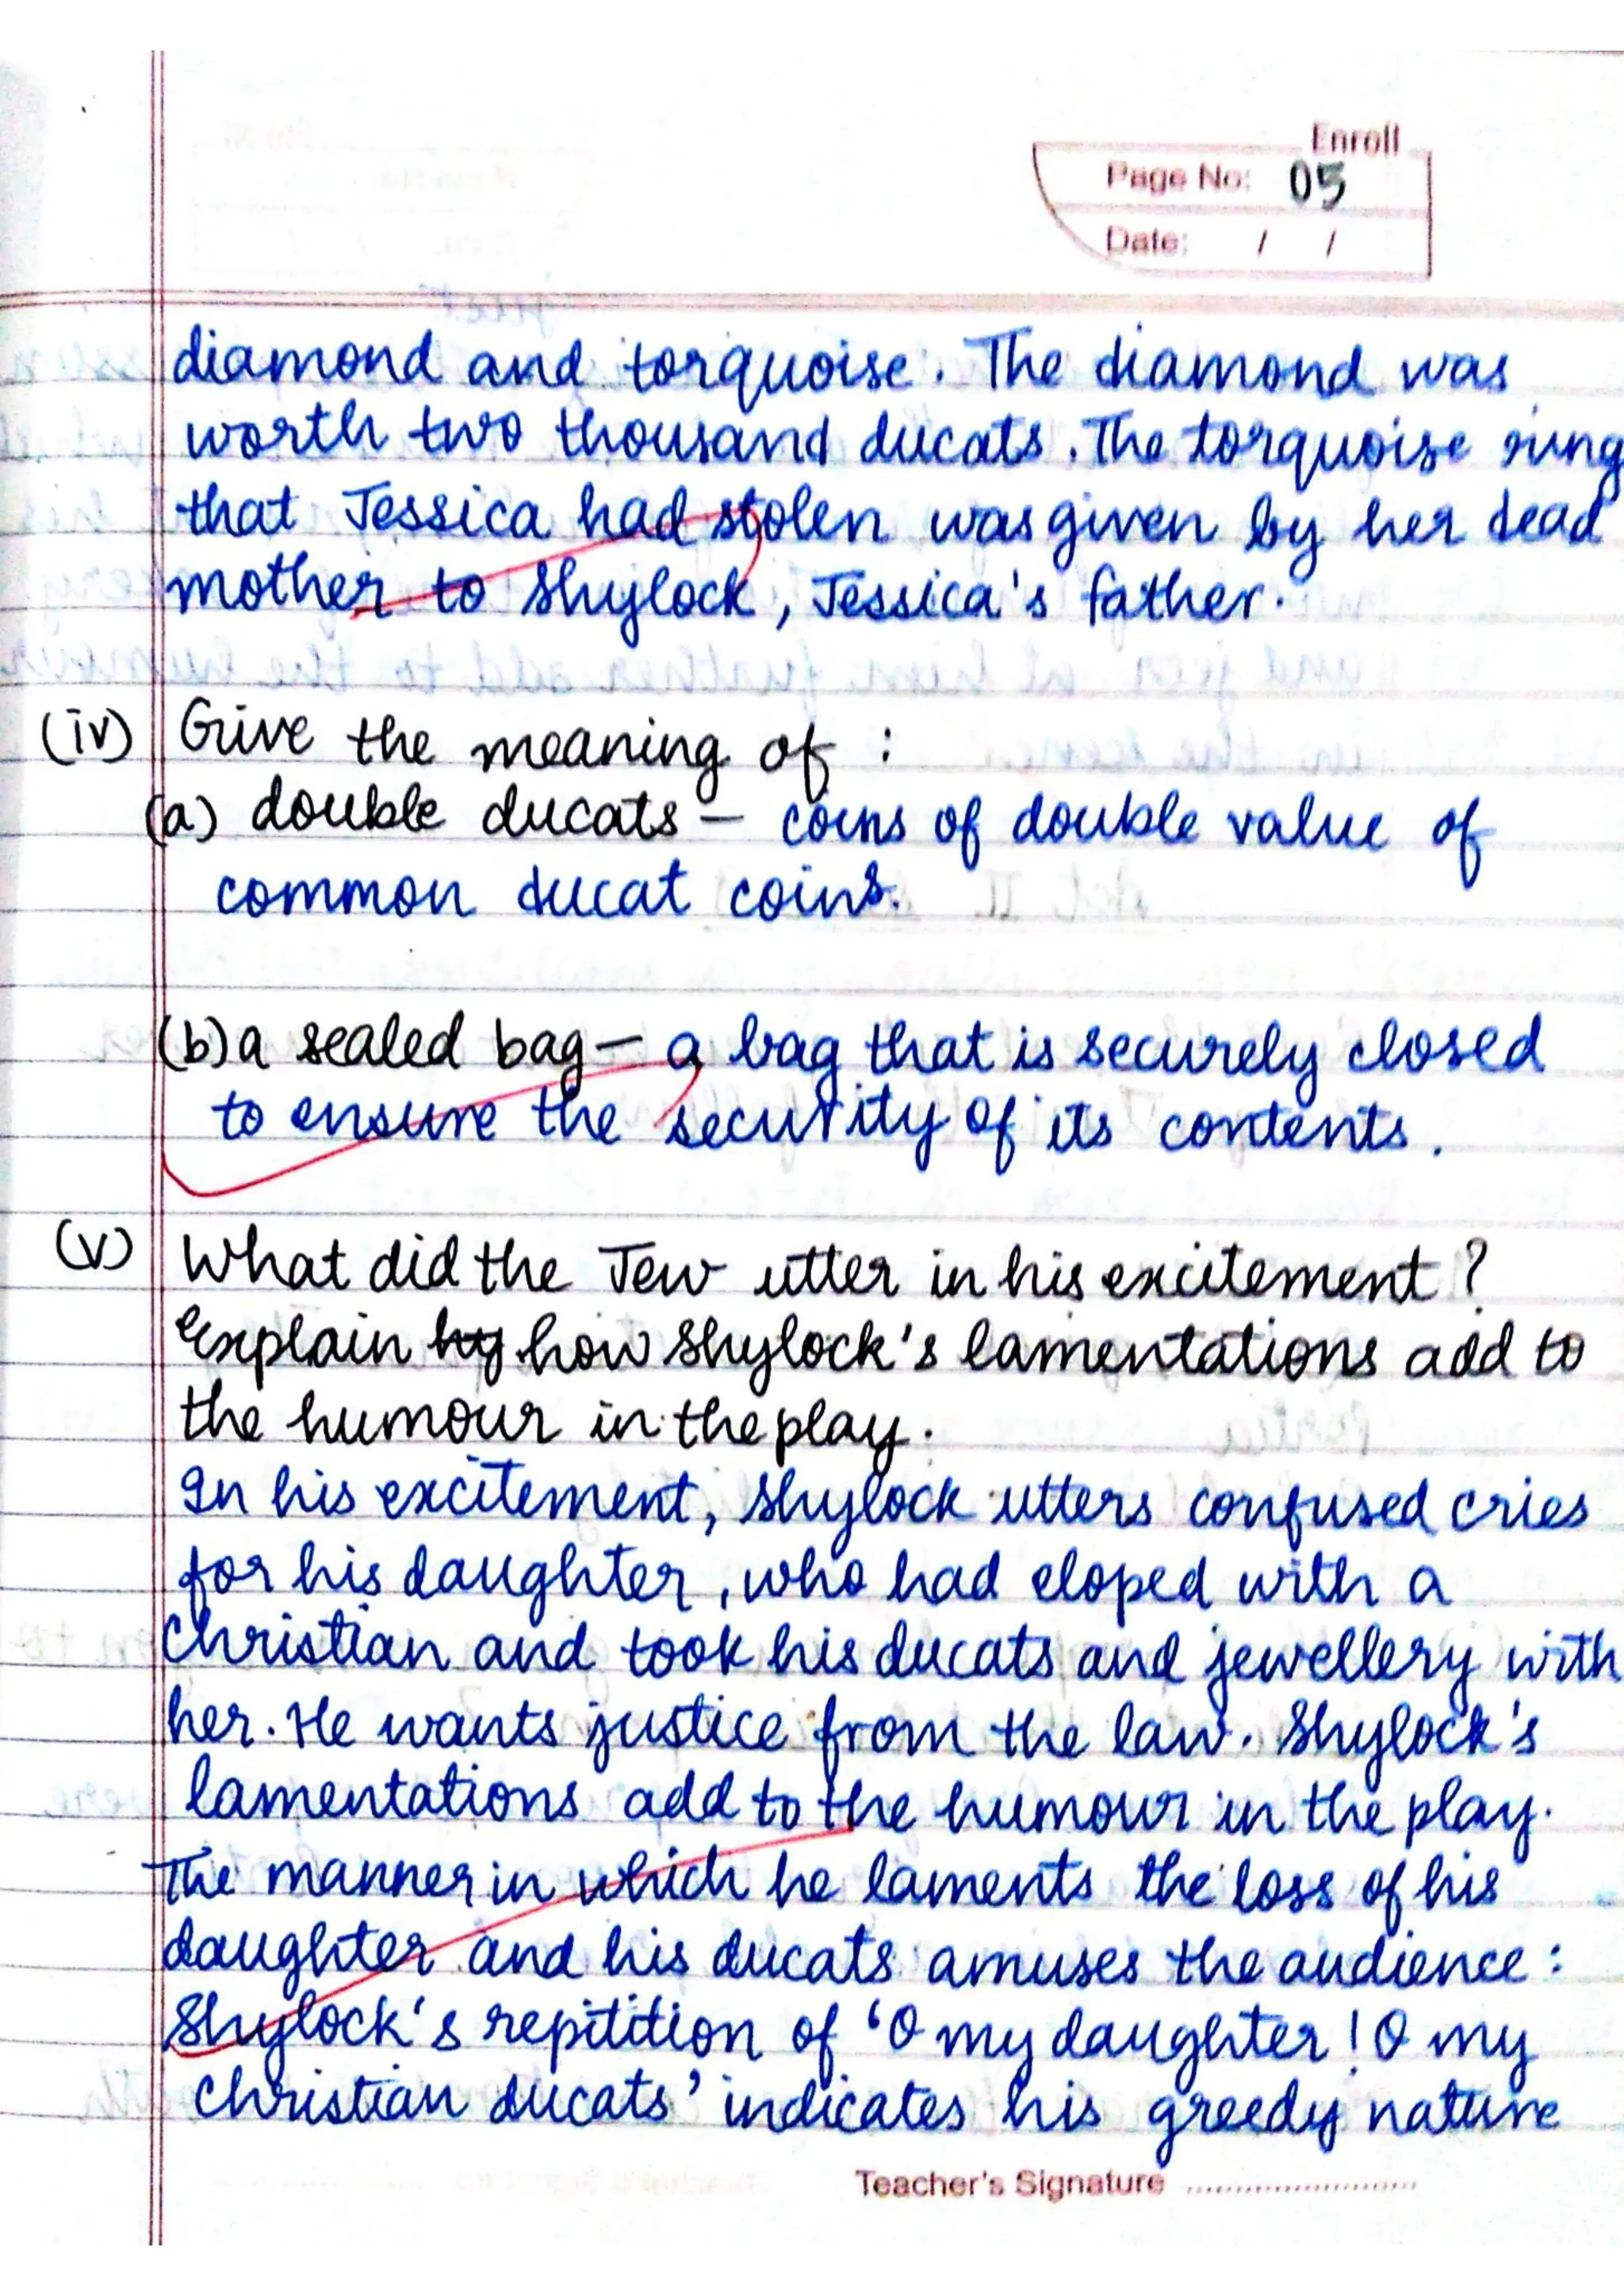 Enroll
Page No: 05
Date: / /
diamond and torquoise. The diamond was
worth two thousand ducats. The torquoise ring
that Jessica had stolen was given by her dead
mother to Shylock, Jessica's father.
(iv) Give the meaning of :
(a) double ducats – coins of double value of
common ducat coins.
(b) a sealed bag – a bag that is securely closed
to ensure the security of its contents.
(v) What did the Jew utter in his excitement?
Explain how Shylock's lamentations add to
the humour in the play.
In his excitement, Shylock utters confused cries
for his daughter, who had eloped with a
Christian and took his ducats and jewellery with
her. He wants justice from the law. Shylock's
lamentations add to the humour in the play.
The manner in which he laments the loss of his
daughter and his ducats amuses the audience:
Shylock's repitition of 'O my daughter! O my
Christian ducats' indicates his greedy nature
Teacher's Signature ........................